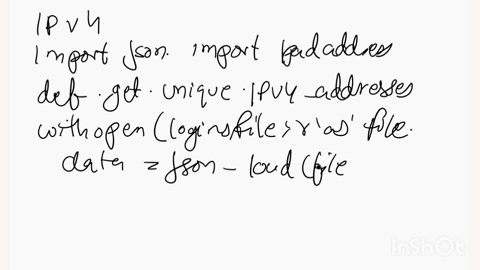 IPv4
import json. import ipadaddress
def.get.unique.ipv4_addresses
with open (loginsfile, 'r' as' file.
data = json - load (file
InShOt